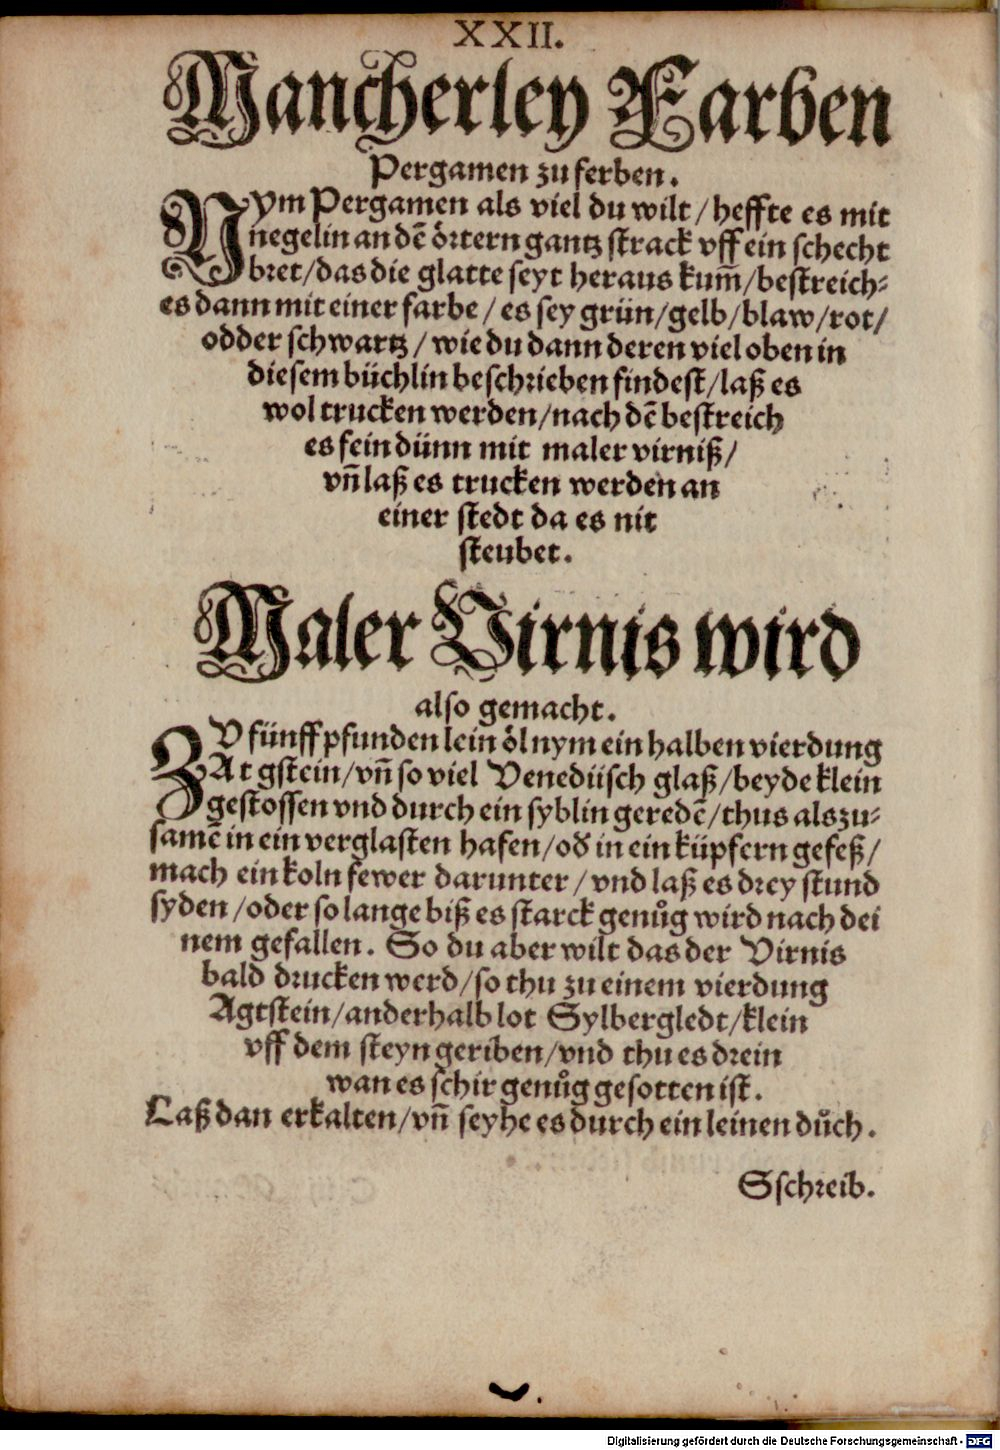 XXII.
Mancherley Farben
Pergamen zu ferben.
Nym Pergamen als viel du wilt / heffte es mit
negelin an dē örtern gantz strack vff ein schecht
bret / das die glatte seyt heraus kum̄ / bestreich⸗
es dann mit einer farbe / es sey grün / gelb / blaw / rot /
odder schwartz / wie du dann deren viel oben in
diesem büchlin beschrieben findest / laß es
wol trucken werden / nach dē bestreich
es fein dünn mit maler virniß /
vñ laß es trucken werden an
einer stedt da es nit
steubet.
Maler Virnis wird
also gemacht.
ZV fünff pfunden lein öl nym ein halben vierdung
At gstein / vñ so viel Venediisch glaß / beyde klein
gestossen vnd durch ein syblin geredē / thus als zu⸗
samē in ein verglasten hafen / oď in ein küpfern gefeß /
mach ein koln fewer darunter / vnd laß es drey stund
syden / oder so lange biß es starck genůg wird nach dei
nem gefallen. So du aber wilt das der Virnis
bald drucken werd / so thu zu einem vierdung
Agtstein / anderhalb lot Sylbergledt / klein
vff dem steyn geriben / vnd thu es drein
wan es schir genůg gesotten ist.
Laß dan erkalten / vñ seyhe es durch ein leinen důch.
Sschreib.
Digitalisierung gefördert durch die Deutsche Forschungsgemeinschaft - DFG